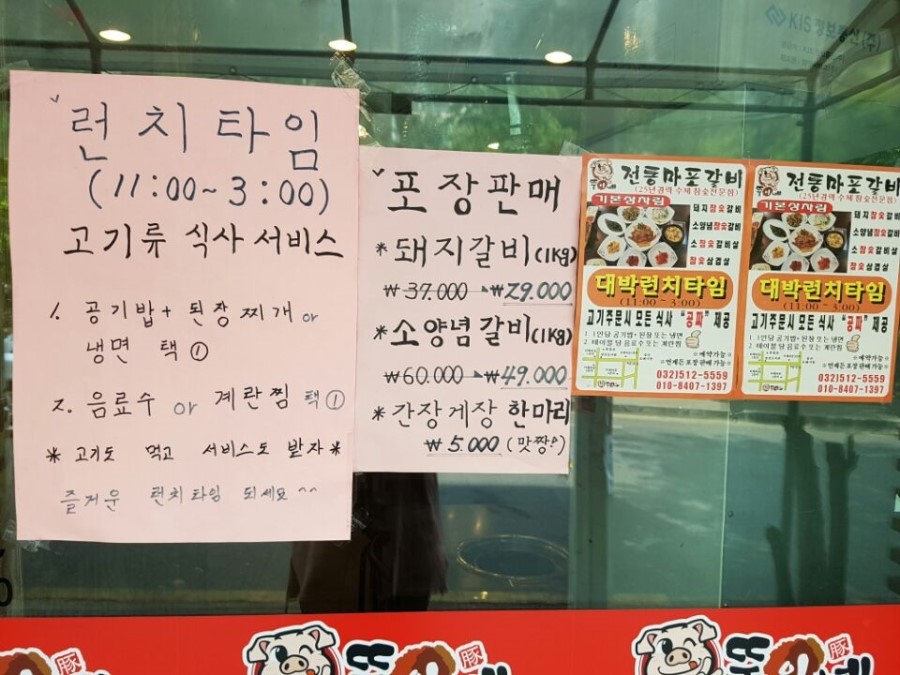 런치타임
(11:00~3:00)
고기류 식사 서비스
1. 공기밥+된장찌개 or
냉면 택①
2. 음료수 or 계란찜 택①
* 고기도 먹고 서비스도 받자 *
즐거운 런치타임 되세요 ^^
포장판매
* 돼지갈비(1kg)
₩37.000→₩29.000
* 소양념갈비(1kg)
₩60.000→₩49.000
* 간장게장 한마리
₩5.000 (맛짱!)
전통마포갈비
(25년경력 수제 참숯전문점)
기본상차림
돼지참숯갈비
소양념참숯갈비
소참숯갈비살
참숯삼겹살
대박런치타임
(11:00~3:00)
고기주문시 모든 식사 "공짜" 제공
1. 1인당 공기밥+된장 또는 냉면
2. 테이블 당 음료수 또는 계란찜
※예약가능※
※언제든 포장판매 가능※
032)512-5559
010-8407-1397
전통마포갈비
(25년경력 수제 참숯전문점)
기본상차림
돼지참숯갈비
소양념참숯갈비
소참숯갈비살
참숯삼겹살
대박런치타임
(11:00~3:00)
고기주문시 모든 식사 "공짜" 제공
1. 1인당 공기밥+된장 또는 냉면
2. 테이블 당 음료수 또는 계란찜
※예약가능※
※언제든 포장판매 가능※
032)512-5559
010-8407-1397
KIS정보통신(주)
豚
豚